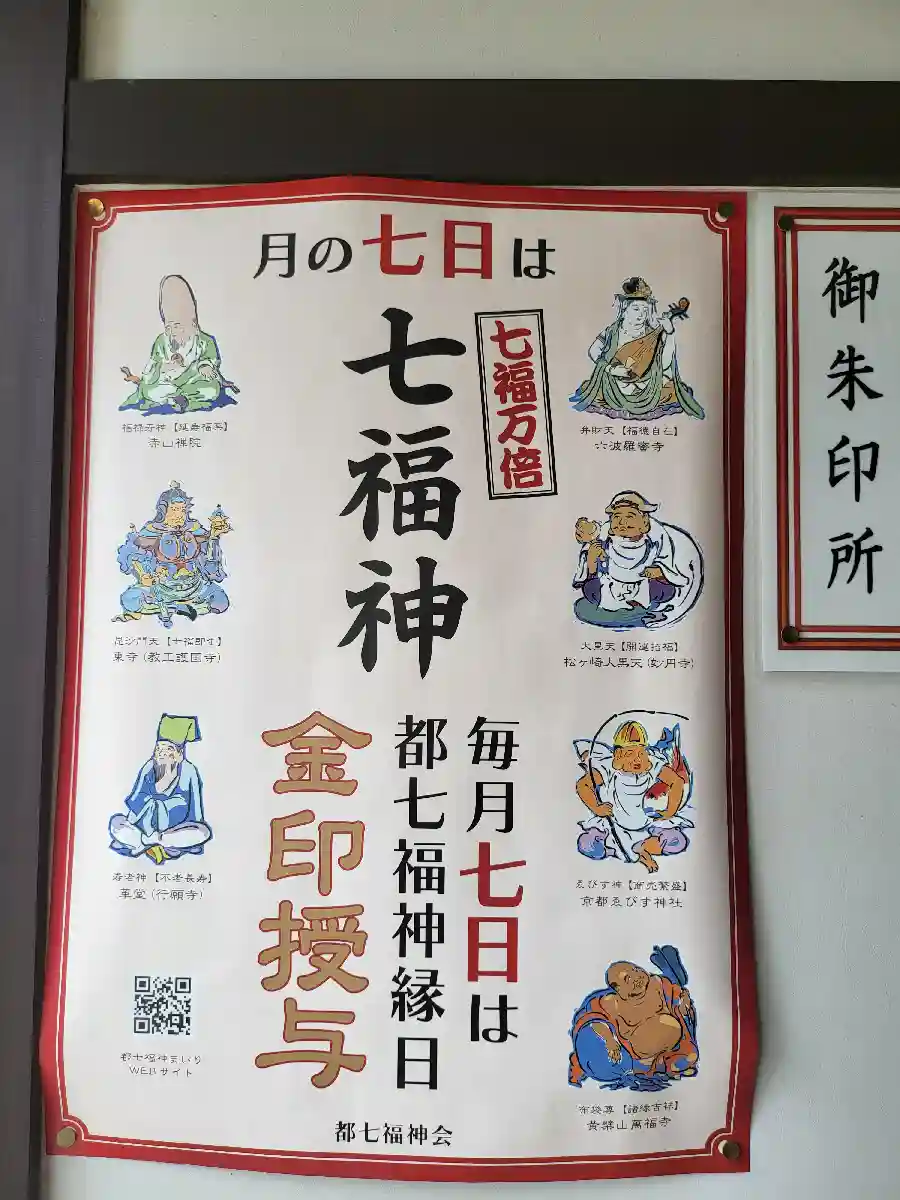 月の七日は
七福神
七福万倍
毎月七日は
都七福神縁日
金印授与
弁財天【福徳自在】
六波羅蜜寺
大黒天【開運招福】
松ヶ崎大黒天(妙円寺)
ゑびす神【商売繁盛】
京都ゑびす神社
布袋尊【諸縁吉祥】
黄檗山萬福寺
福禄寿神【延寿福楽】
赤山禅院
毘沙門天【七福即生】
東寺(教王護国寺)
寿老神【不老長寿】
革堂(行願寺)
都七福神まいり
WEBサイト
都七福神会
御朱印所